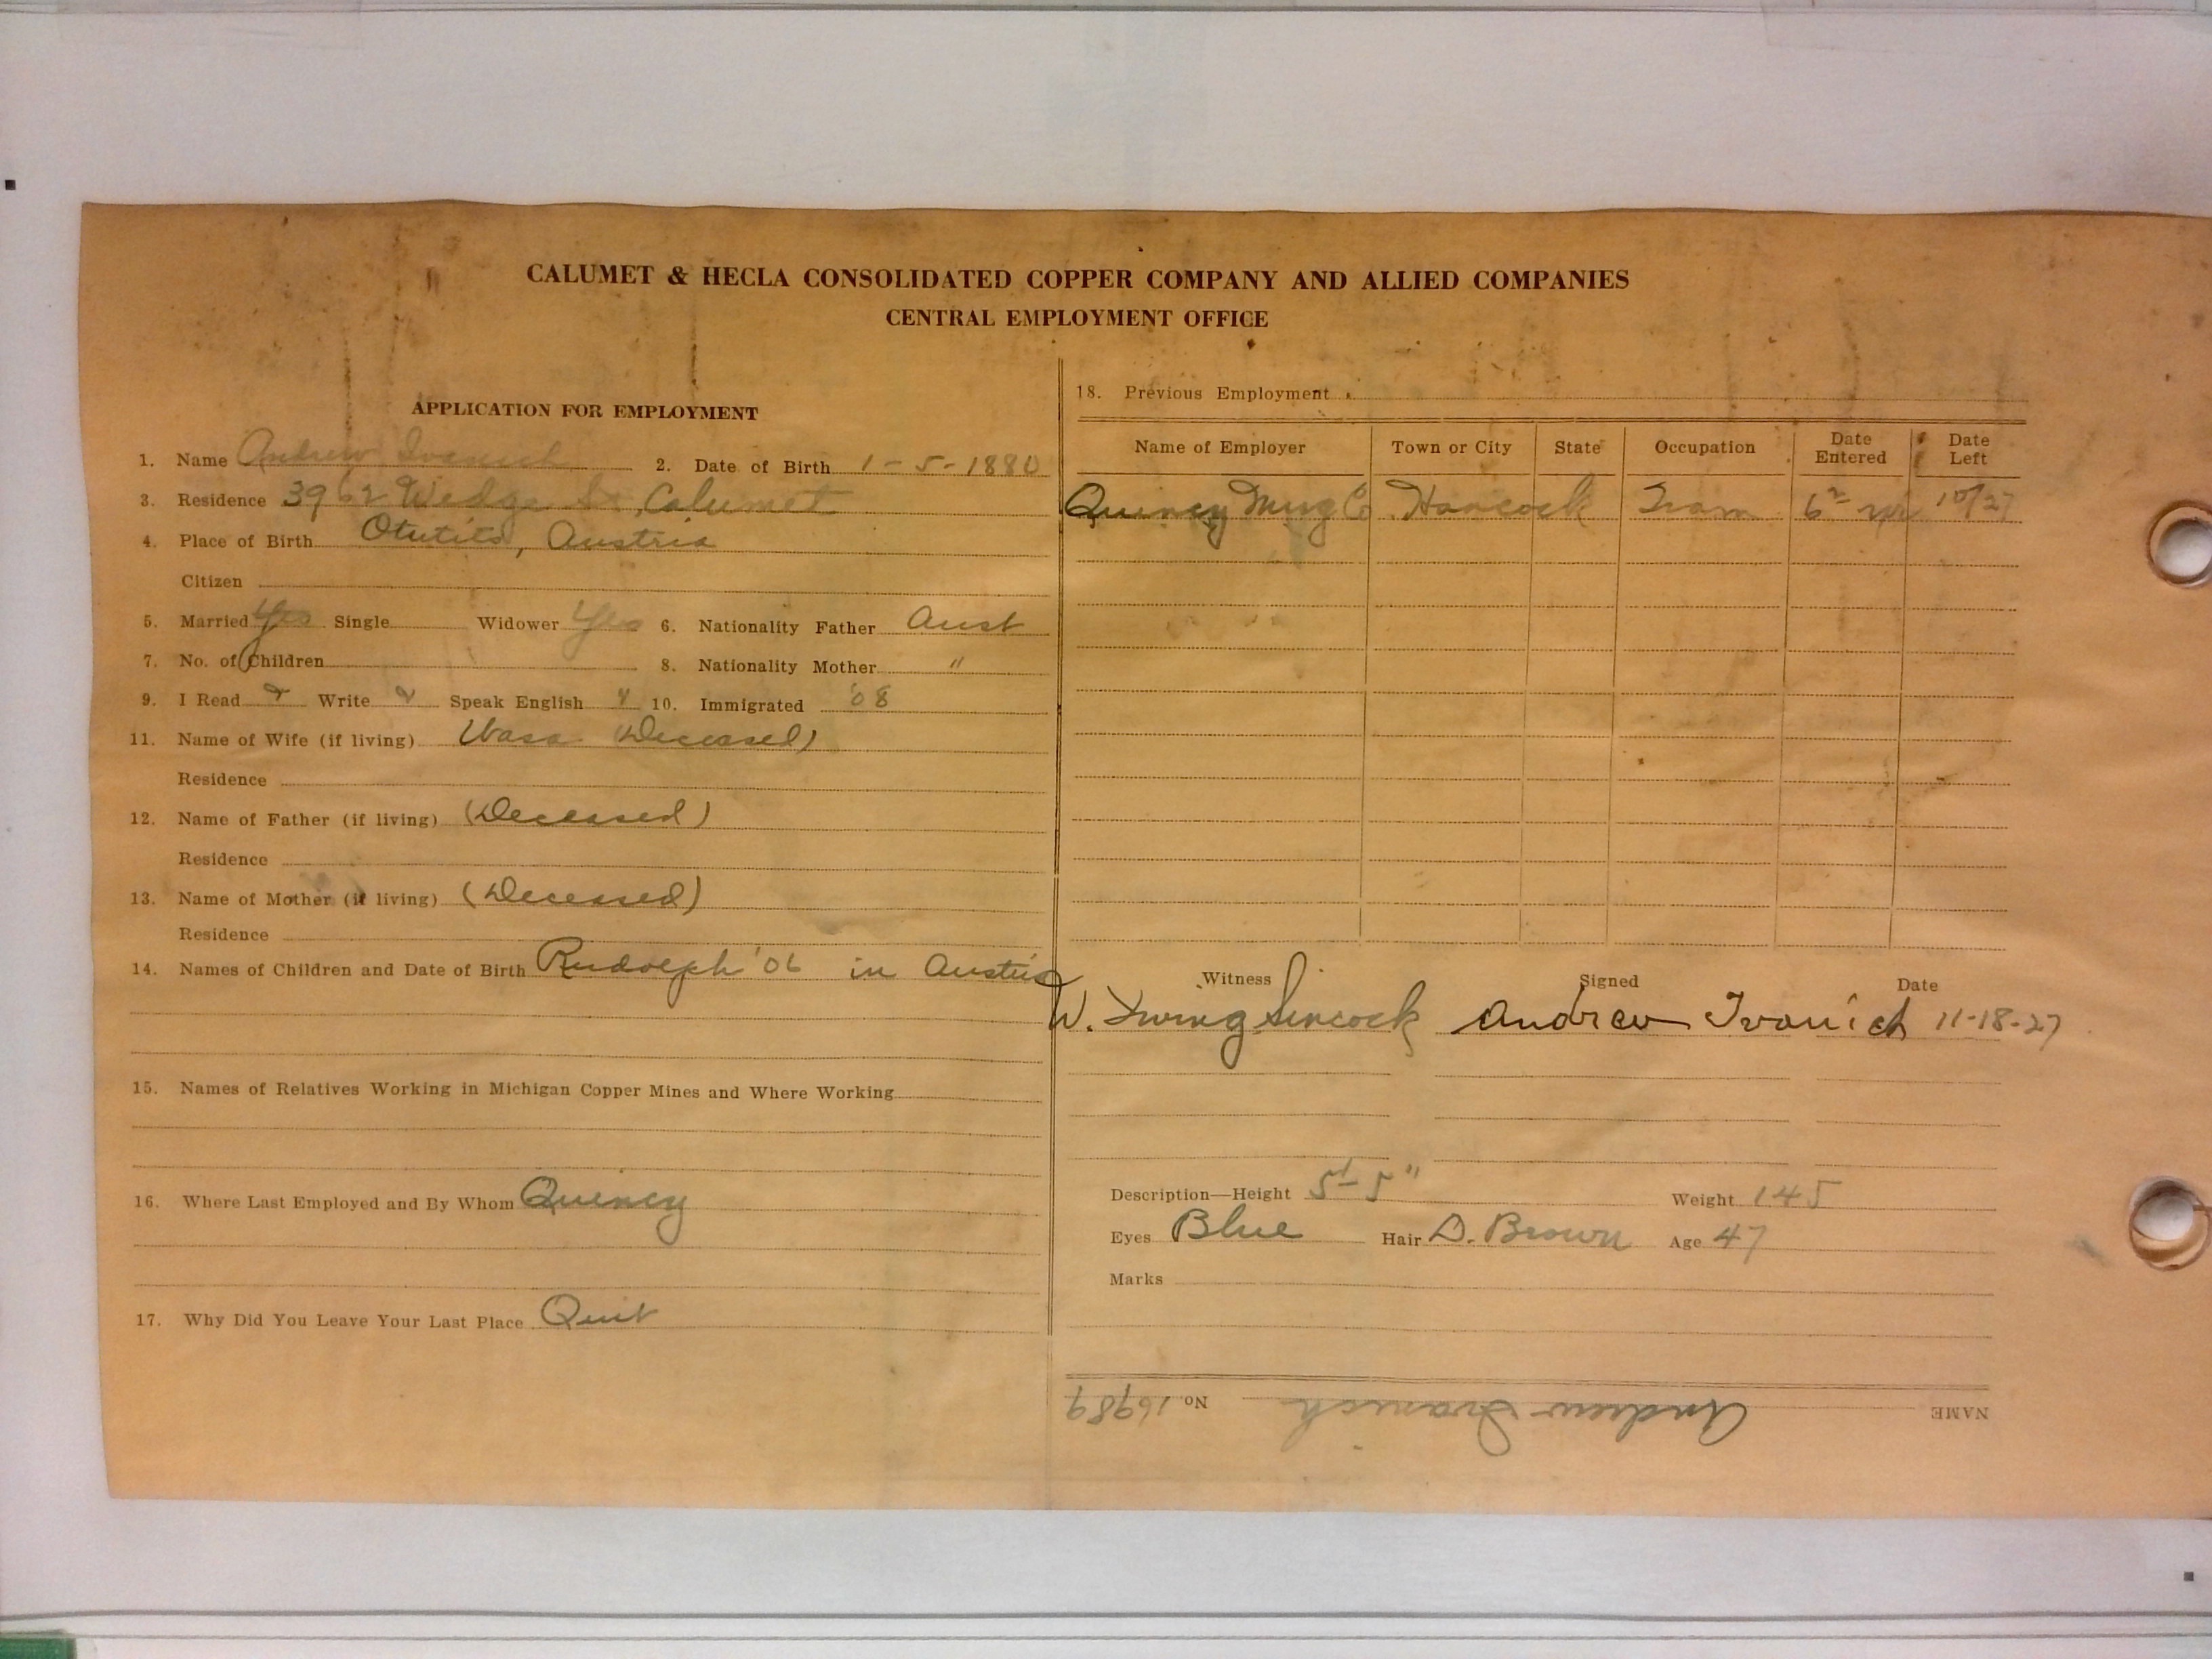 CALUMET & HECLA CONSOLIDATED COPPER COMPANY AND ALLIED COMPANIES
CENTRAL EMPLOYMENT OFFICE
APPLICATION FOR EMPLOYMENT
1. Name Andrew Ivanich 2. Date of Birth 1-5-1880
3. Residence 3962 Wedge St Calumet
4. Place of Birth Austria
Citizen
5. Married Yes Single Widower Yes 6. Nationality Father Aust
7. No. of Children 8. Nationality Mother "
9. I Read Write Speak English 10. Immigrated '08
11. Name of Wife (if living) (Deceased)
Residence
12. Name of Father (if living) (Deceased)
Residence
13. Name of Mother (if living) (Deceased)
Residence
14. Names of Children and Date of Birth Rudolph '06 in Austria
15. Names of Relatives Working in Michigan Copper Mines and Where Working
16. Where Last Employed and By Whom Quincy
17. Why Did You Leave Your Last Place Quit
18. Previous Employment
Name of Employer Town or City State Occupation Date Entered Date Left
Quincy Mng Co Hancock Tram 10/27
Witness Signed Date
W. Irving Sincock Andrew Ivanich 11-18-27
Description—Height 5'-5" Weight 145
Eyes Blue Hair D. Brown Age 47
Marks
NAME Andrew Ivanich No. 16989